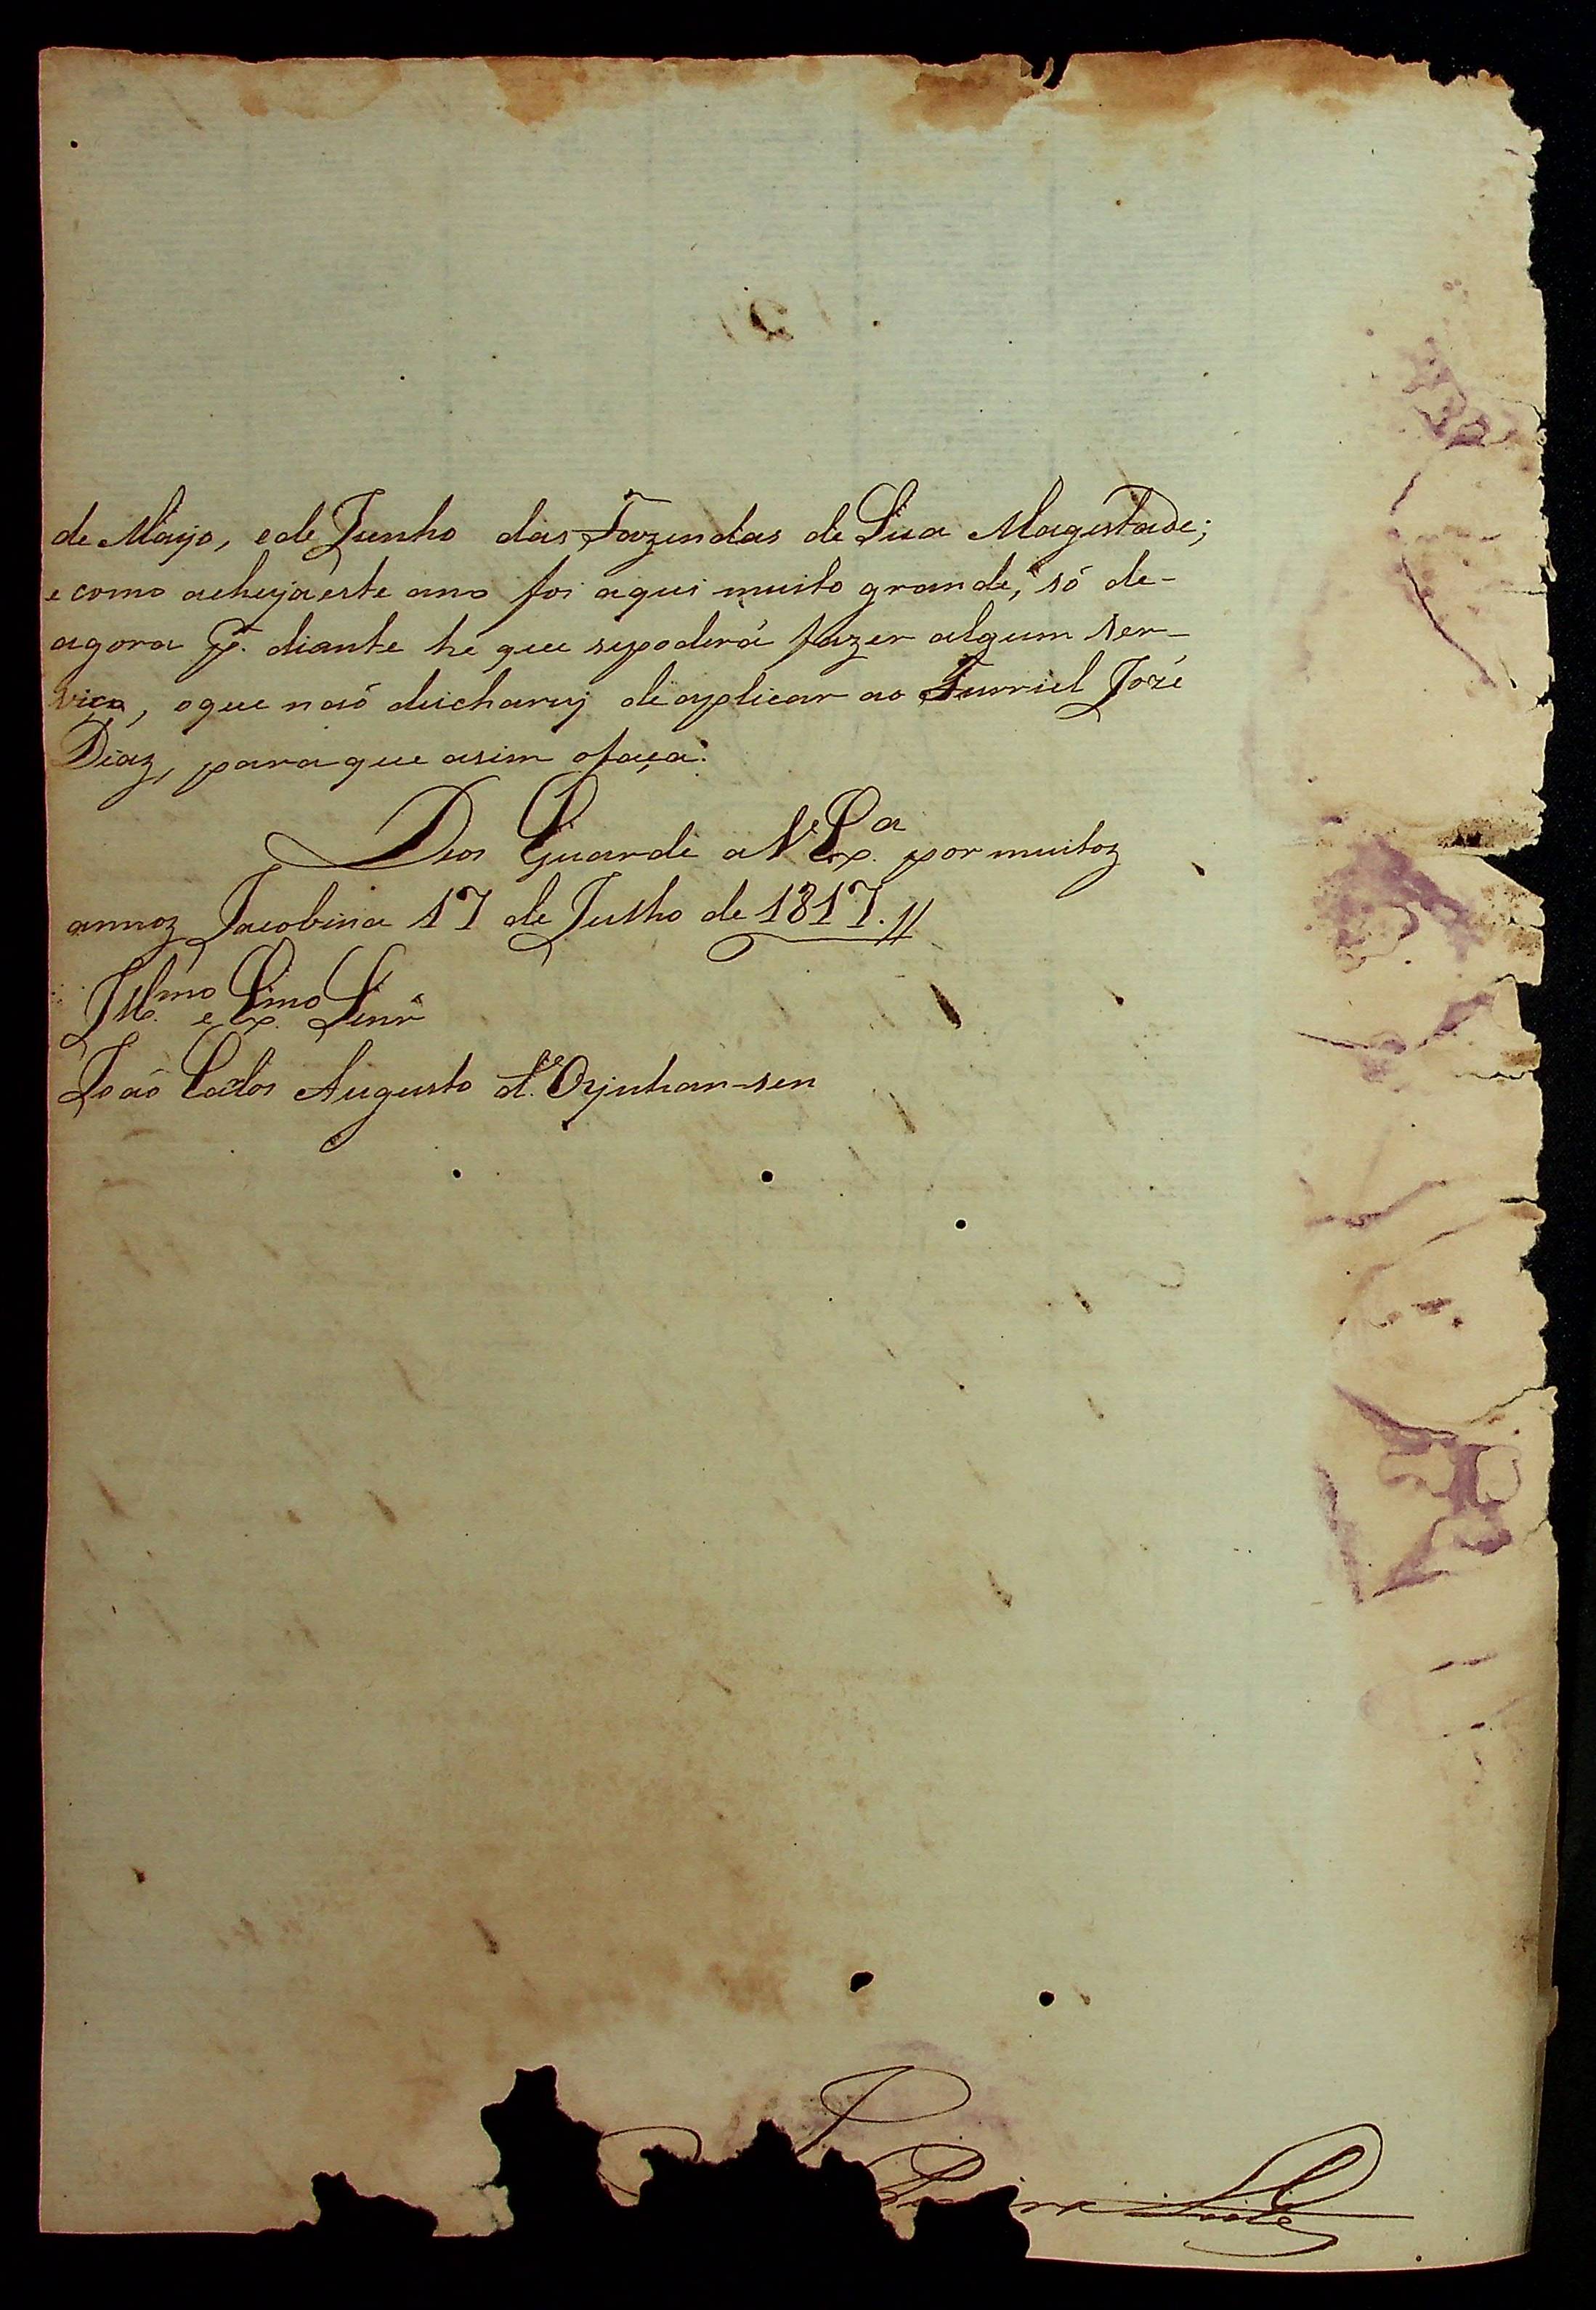 de Mayo, e de Junho das Fazendas de Sua Magestade;
e como acheya este ano foi aqui muito grande, só de-
agora pª. diante hé que sepoderá fazer algum ser-
viço, oque naó deicharey de aplicar ao Furriel Jozé
Diaz, paraque asim ofaça.
Deos Guarde a V. Exª. por muitoz
annoz Jacobina 17 de Julho de 1817.
Illmo. e Exmo. Senr
Joaó Carlos Augusto d'Oyenhausen
Leite